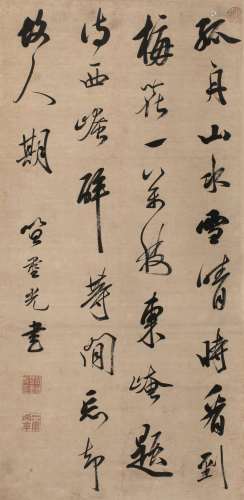 孤舟山水雪晴時看到
梅花一萬枝東崦題
詩西崦醉等閒忘却
故人期
笪重光書